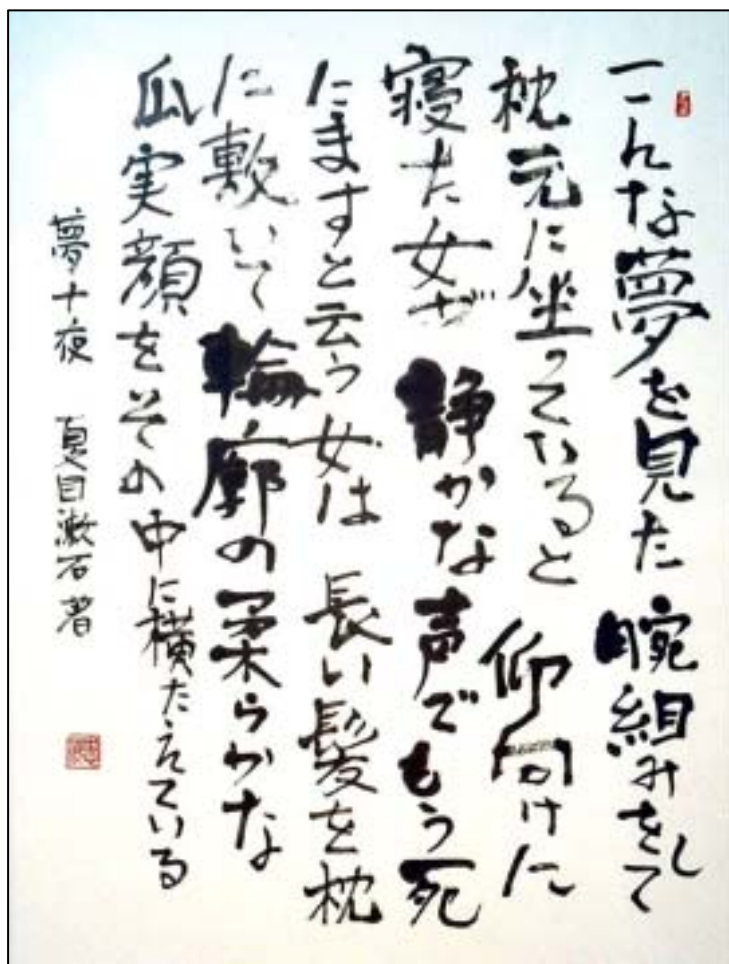 こんな夢を見た 腕組みをして
枕元に坐っていると 仰向けに
寝た女が 静かな声でもう死
にますと云う 女は 長い髪を枕
に敷いて 輪廓の柔らかな
瓜実顔をその中に横たえている
夢十夜 夏目漱石著